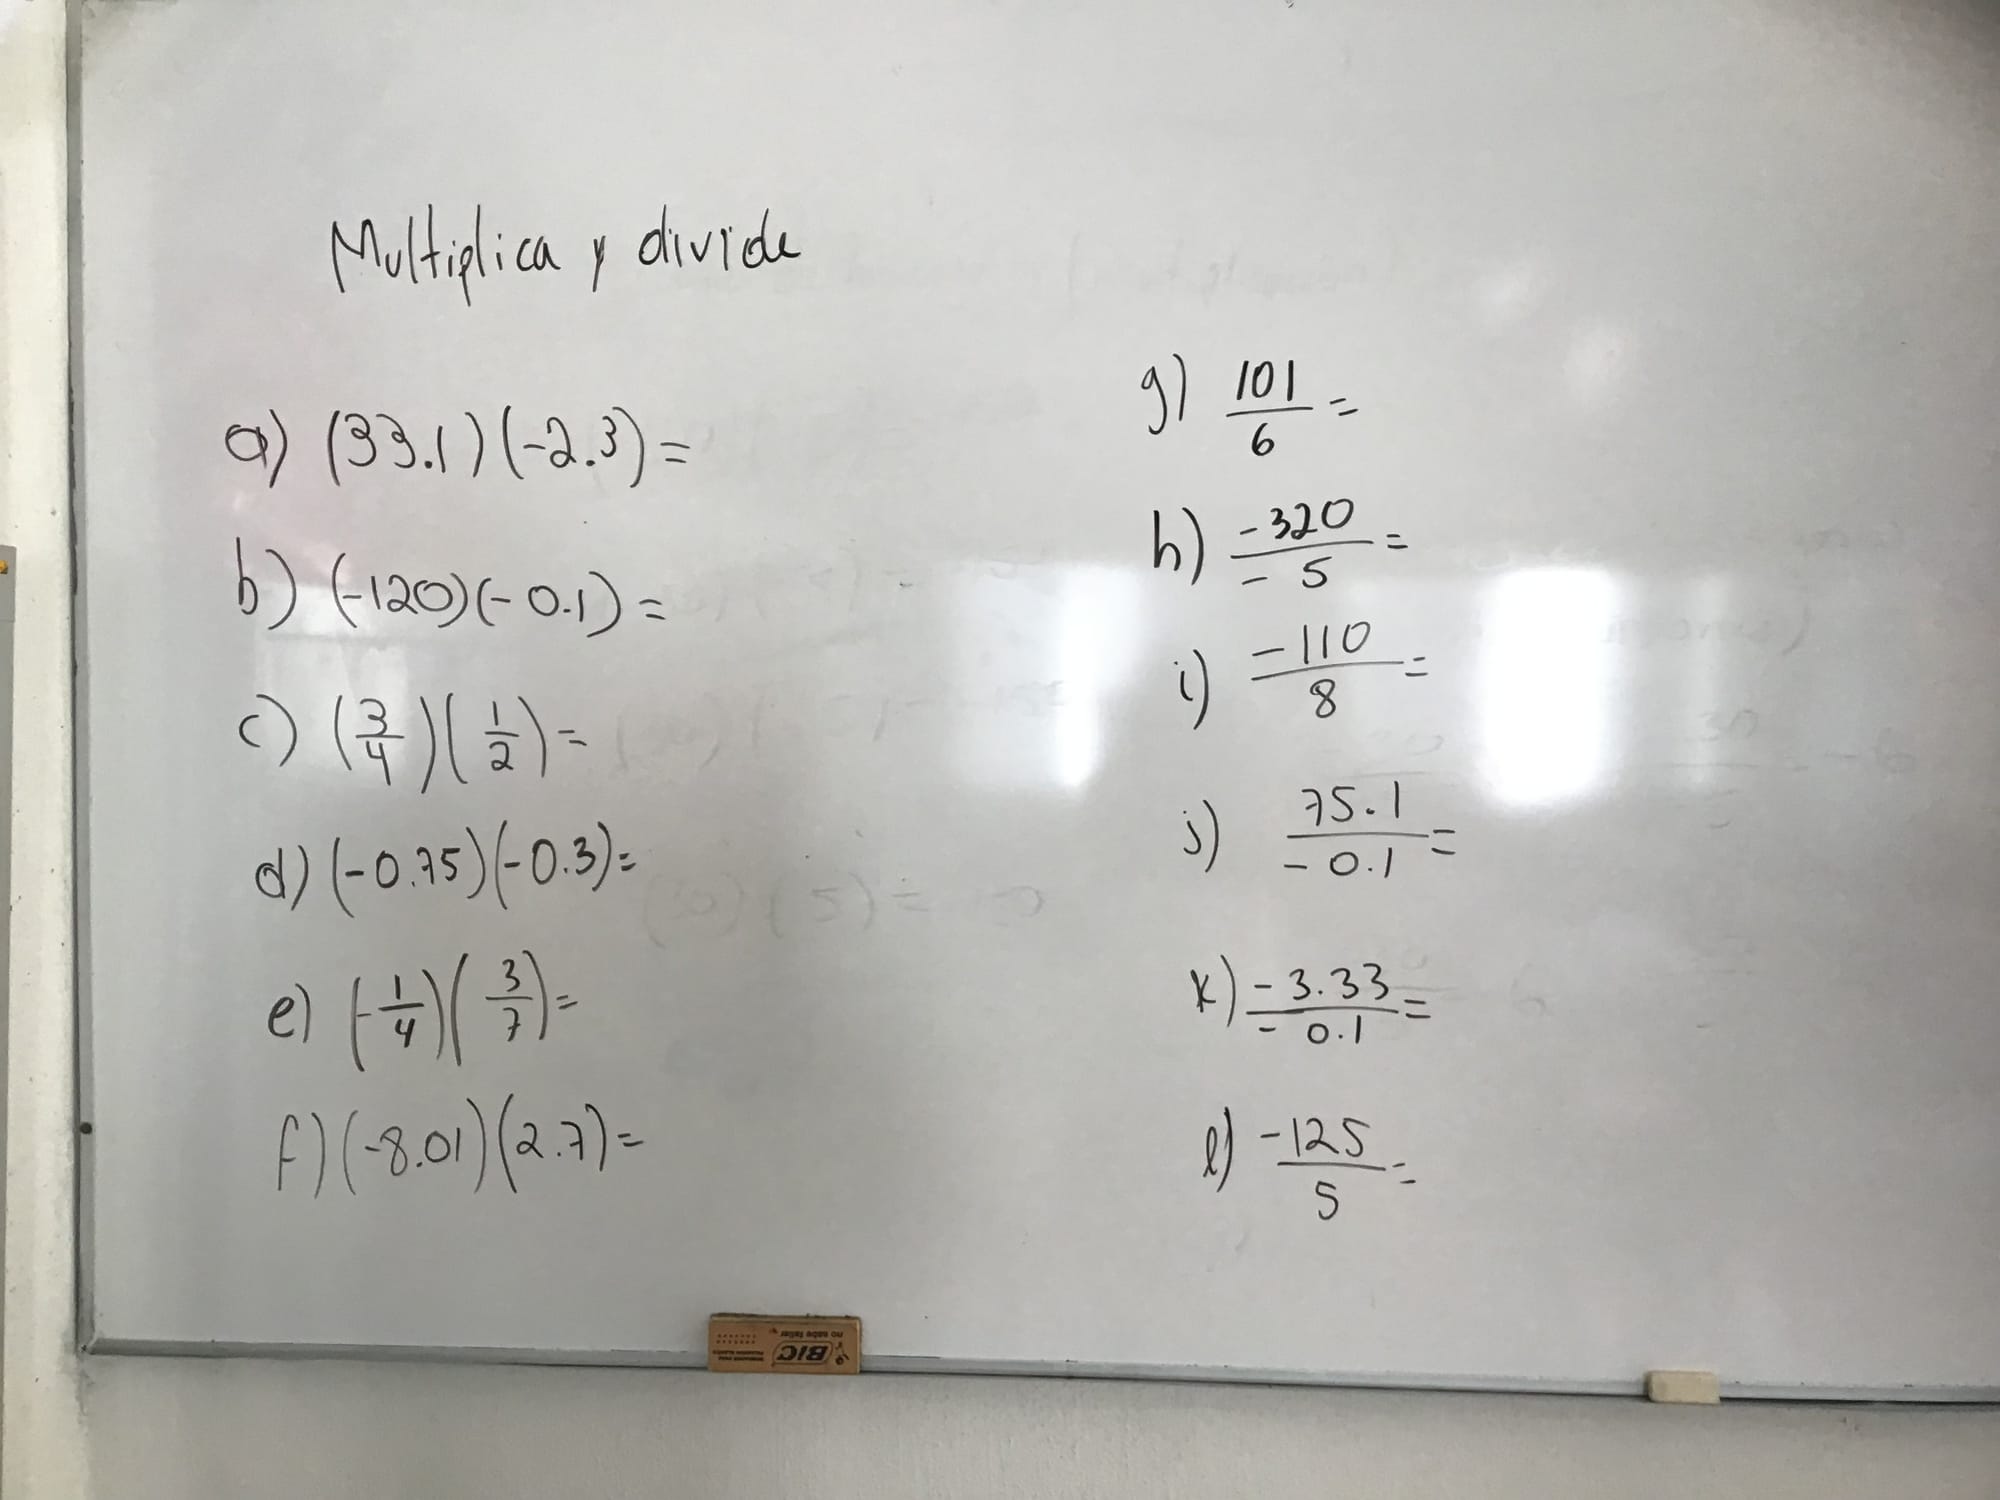 Multiplica y divide
a) (33.1)(-2.3)=
b) (-120)(-0.1)=
c) (3/4)(1/2)=
d) (-0.75)(-0.3)=
e) (-1/4)(3/7)=
f) (-8.01)(2.7)=
g) 101/6=
h) -320/-5=
i) -110/8=
j) 75.1/-0.1=
k) -3.33/-0.1=
l) -125/5=
BIC
no sabe fallar